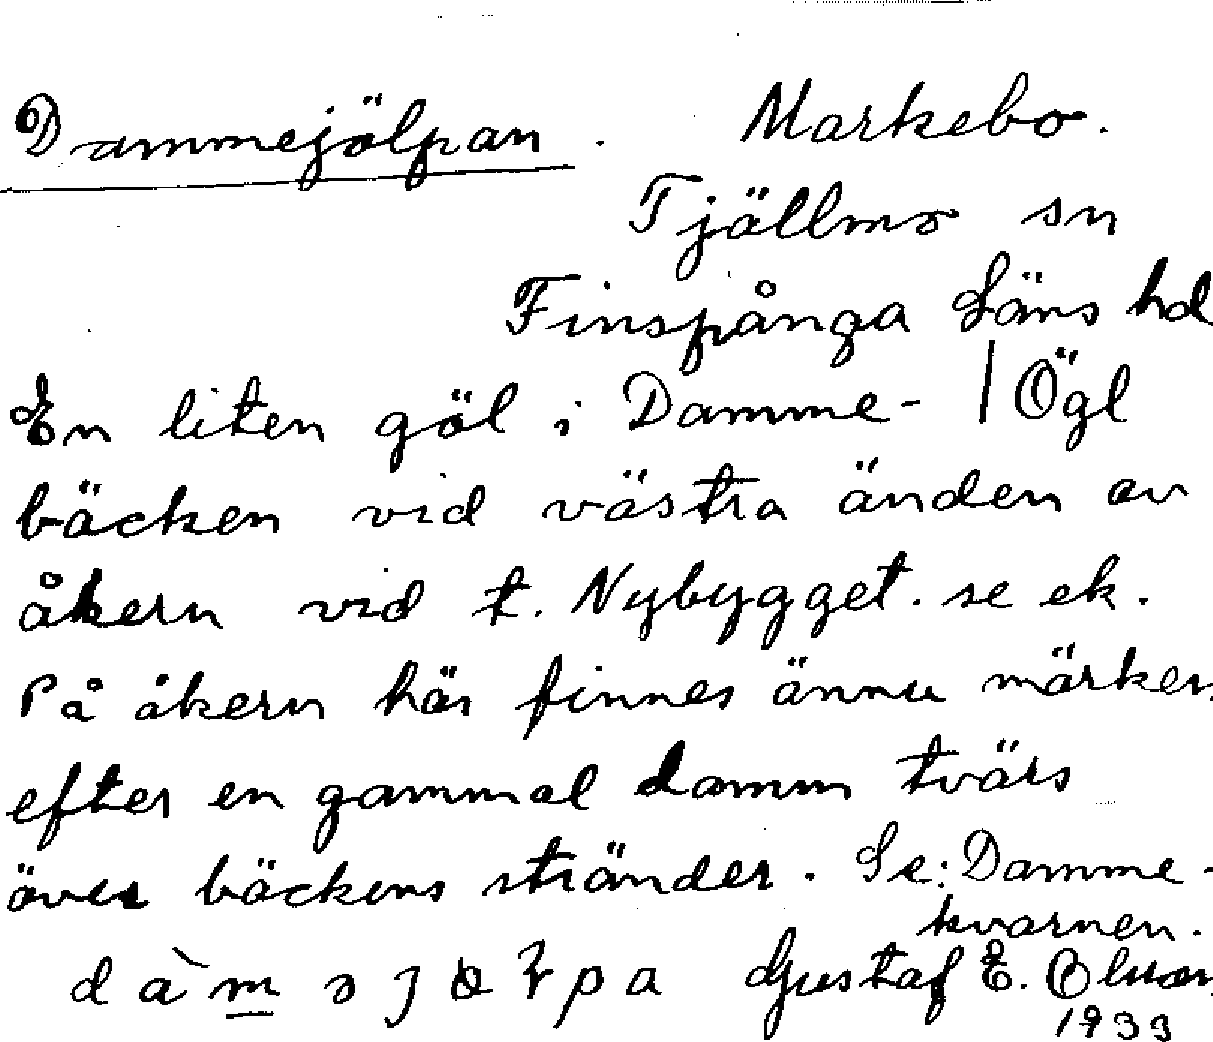 Dammejölpan. Markebo.
Tjällmo sn
Finspånga Läns hd
En liten göl i Damme- | Ögl
bäcken vid västra änden av
åkern vid t. Nybygget. se ek.
På åkern här finnes ännu märken
efter en gammal damm tvärs
över bäckens stränder. Se: Damme-
kvarnen.
Gustaf E. Olsson
1933